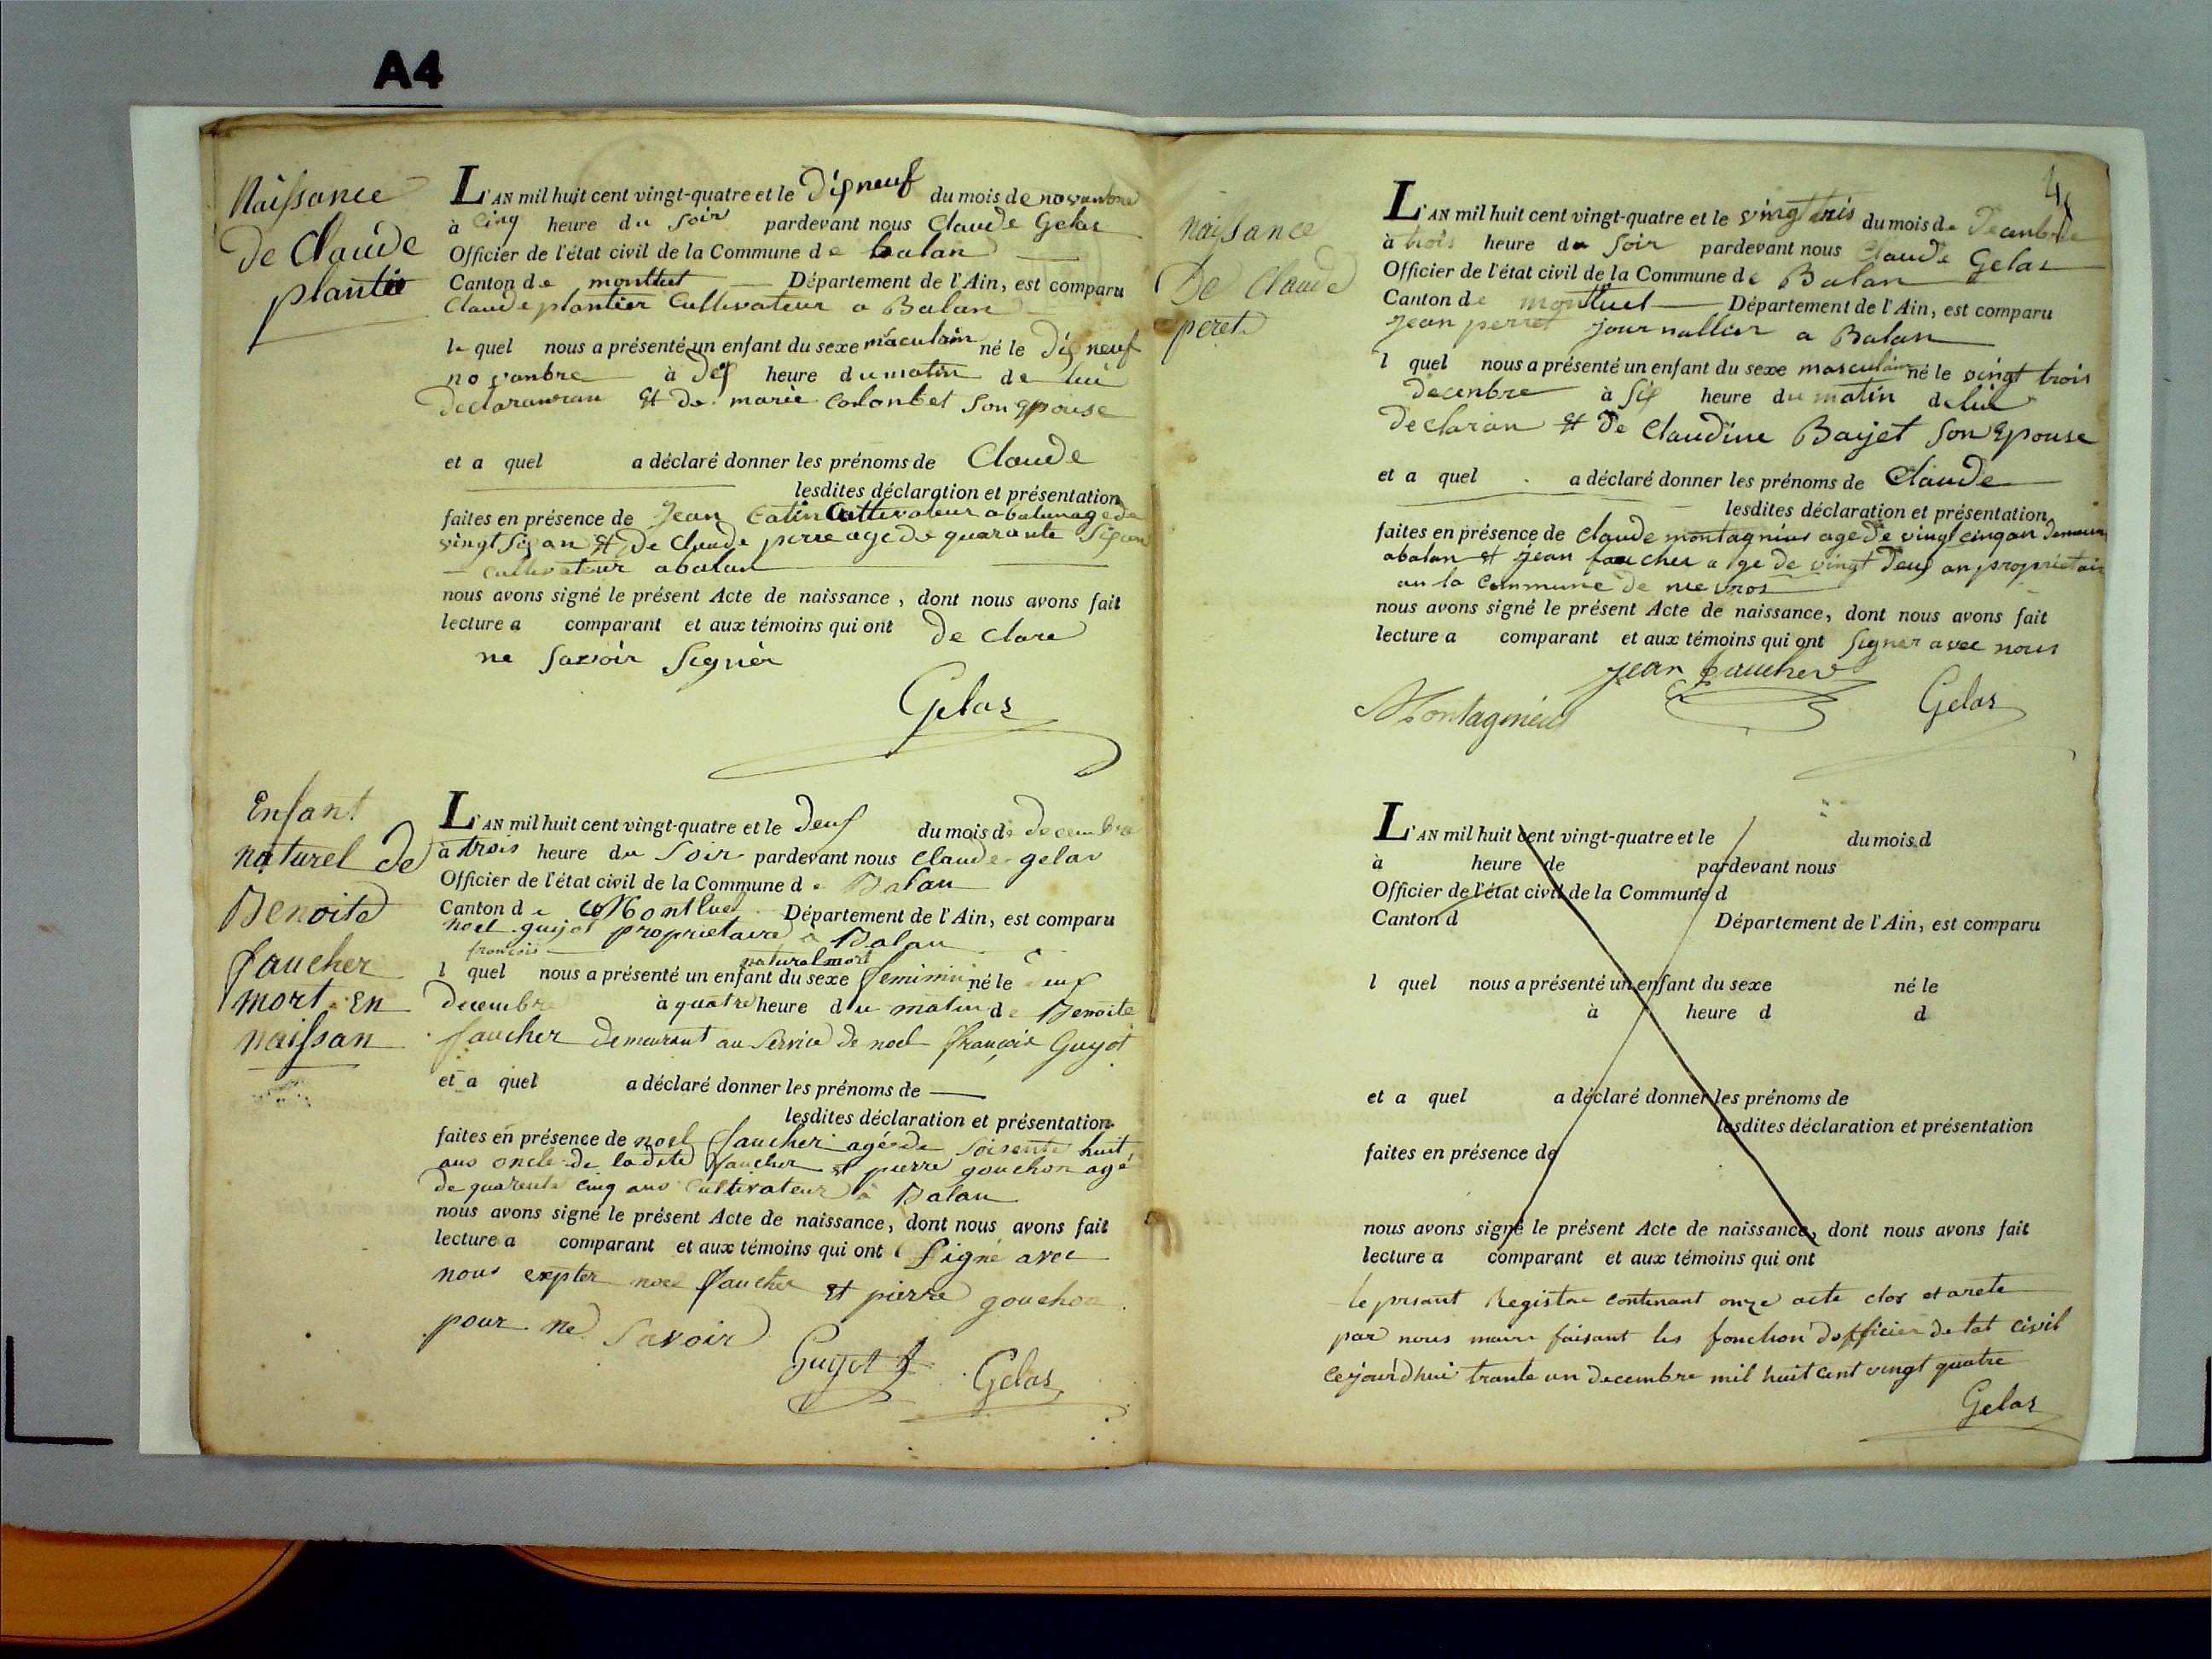 A4
Naissance
de Claude
plantier
L'AN mil huit cent vingt-quatre et le dix neuf du mois de novanbre
à cinq heure du soir pardevant nous Claude Gelas
Officier de l'état civil de la Commune de balan
Canton de montluel Département de l'Ain, est comparu
Claude plantier Cultivateur a Balan
le quel nous a présenté un enfant du sexe maculain né le dix neuf
novanbre à dix heure du matin de lui
declaran et de marie Colonbet son epouse
et a quel a déclaré donner les prénoms de Claude
lesdites déclaration et présentation
faites en présence de Jean Catin Cultivateur a balan age de
vingt six an et de Claude perre age de quarante six an
cultivateur a balan
nous avons signé le présent Acte de naissance, dont nous avons fait
lecture a comparant et aux témoins qui ont de clare
ne savoir signer
Gelas
Enfant
naturel de
Benoite
faucher
mort en
naissan
L'AN mil huit cent vingt-quatre et le deux du mois de decembre
à trois heure du soir pardevant nous claude gelas
Officier de l'état civil de la Commune de Balan
Canton de Montluel Département de l'Ain, est comparu
noel guyot propriétaire à Balan
françois
naturel mort
l quel nous a présenté un enfant du sexe feminin né le deux
decembre à quatre heure du matin de Benoite
faucher demeurant au service de noel françois Guyot
et a quel a déclaré donner les prénoms de
lesdites déclaration et présentation
faites en présence de noel faucher agé de soisente huit
ans oncle de ladite faucher et pierre gouchon agé
de quarente cinq ans cultivateur à Balan
nous avons signé le présent Acte de naissance, dont nous avons fait
lecture a comparant et aux témoins qui ont signé avec
nous expter noel faucher et pierre gouchon
pour ne savoir
Guyot Gelas
4
naissance
De Claude
peret
L'AN mil huit cent vingt-quatre et le vingt trois du mois de Decenbre
à trois heure du soir pardevant nous Claude Gelas
Officier de l'état civil de la Commune de Balan
Canton de montluel Département de l'Ain, est comparu
Jean perret journallier a Balan
l quel nous a présenté un enfant du sexe masculain né le vingt trois
decenbre à six heure du matin de lui
declaran et de Claudine Baijet son epouse
et a quel a déclaré donner les prénoms de Claude
lesdites déclaration et présentation
faites en présence de claude montagnieu age de vingt cinq an
abalan et jean faucher age de vingt deux an propriétair
an la Commune de
nous avons signé le présent Acte de naissance, dont nous avons fait
lecture a comparant et aux témoins qui ont signer avec nous
jean faucher
Montagnieu Gelas
L'AN mil huit cent vingt-quatre et le du mois d
à heure de pardevant nous
Officier de l'état civil de la Commune d
Canton d Département de l'Ain, est comparu
l quel nous a présenté un enfant du sexe né le
à heure d d
et a quel a déclaré donner les prénoms de
lesdites déclaration et présentation
faites en présence de
nous avons signé le présent Acte de naissance, dont nous avons fait
lecture a comparant et aux témoins qui ont
le prisant Registre contenant onze acte clos et arete
par nous maire faisant les fonction d'officier de tat civil
cejourdhui trante un decembre mil huit cent vingt quatre
Gelas